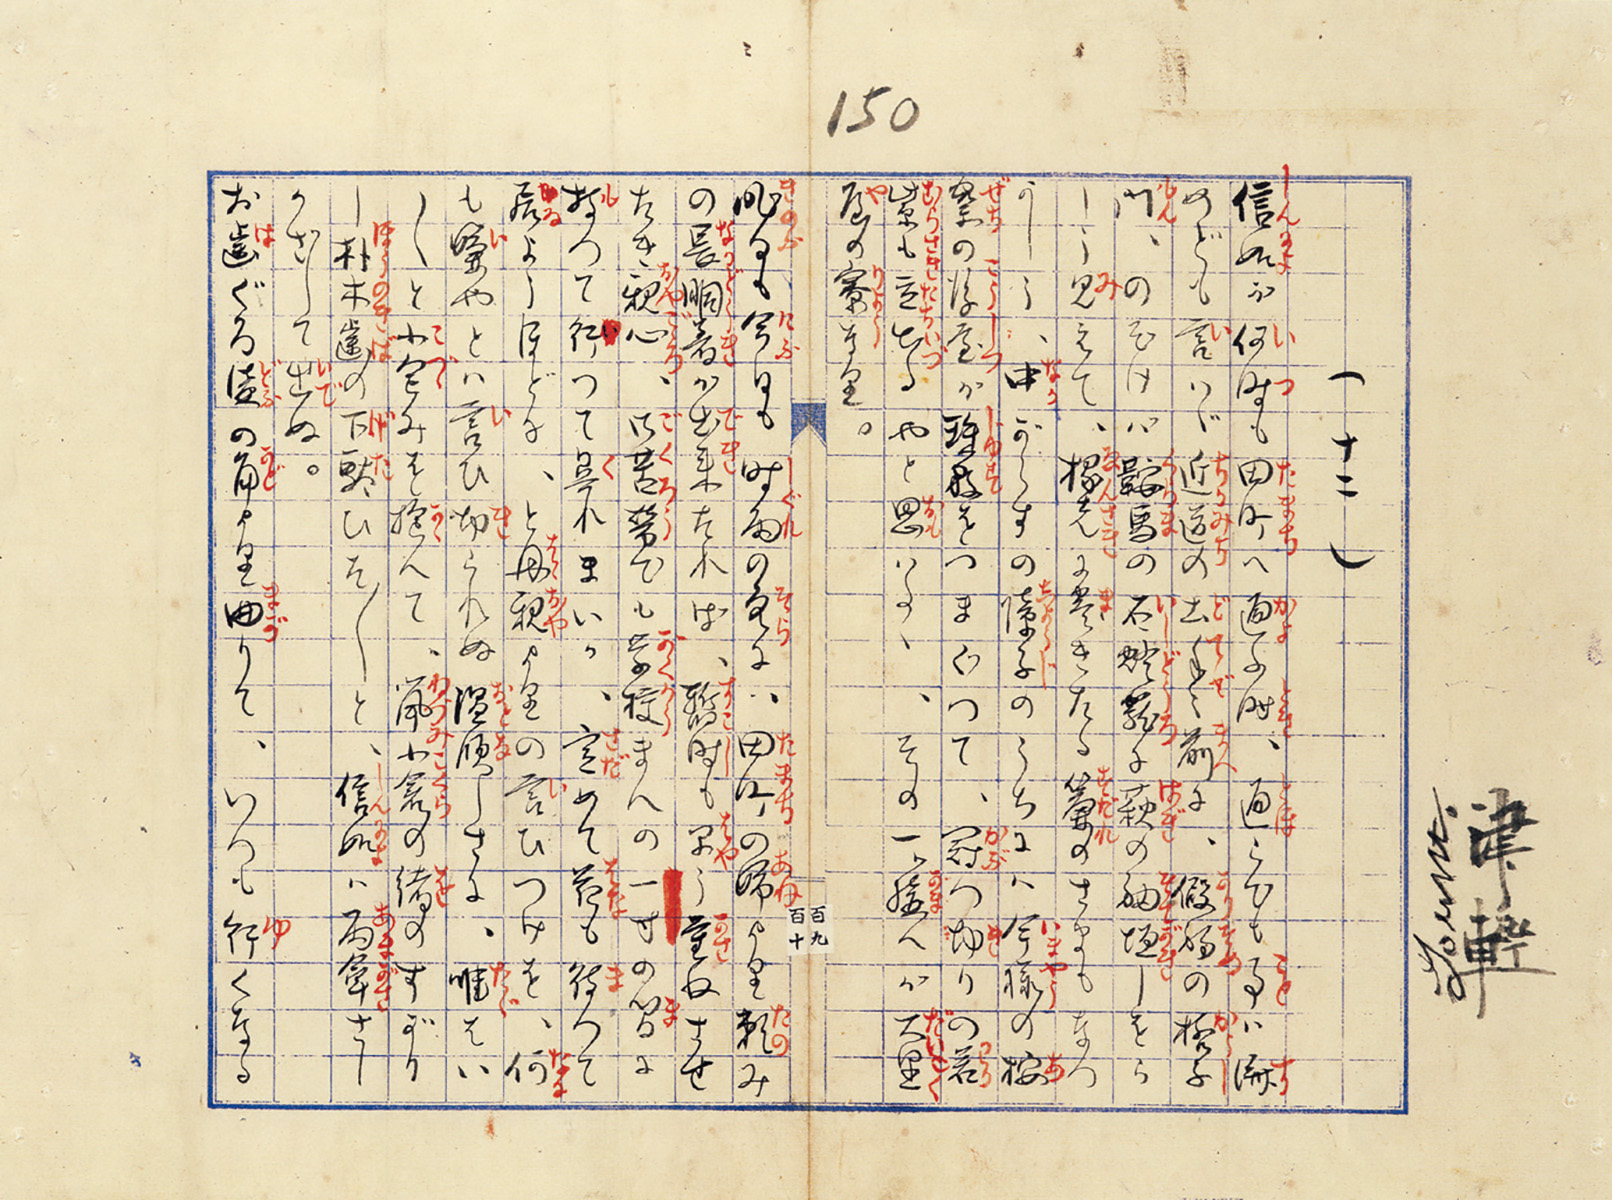 150
(十二)
信如が何時も田町へ通ふ時、通らでも事は濟
めども言はゞ近道の土手々前に、假初の格子
門、のぞけば鞍馬の石燈籠に萩の袖垣しをら
しう見えて、椽先に巻きたる簾のさまもなつ
かしう、中がらすの障子のうちには今様の按
察の後室が珠數をつまぐつて、冠つ切りの若
紫も立出るやと思はるゝ、その一ツ搆へが大黒
屋の寮なり。
百九
百十
昨日も今日も時雨の空に、田町の姉より頼み
の長胴着が出來たれば、暫時も早う重ねさせ
たき親心、御苦勞でも學校まへの一寸の間に
持つて行つて呉れまいか、定めて花も待つて
居ようほどに、と母親よりの言ひつけを、何
も嫌やとは言ひ切られぬ温順しさに、唯はい
〳〵と小包みを抱へて、鼠小倉の緒のすがり
し朴木齒の下駄ひた〳〵と、信如は雨傘さし
かざして出ぬ。
お齒ぐろ溝の角より曲りて、いつも行くなる
津輕